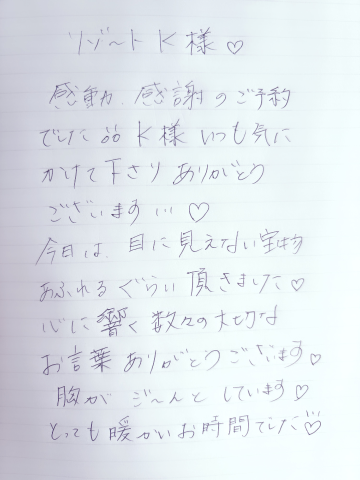 リゾート K 様♡
感動、感謝のご予約
でした 品 K様 いつも気に
かけて下さり ありがとう
ございます!!! ♡
今日は、目に見えない宝物
あふれるぐらい頂きました♡
心に響く数々の大切な
お言葉ありがとうございます♡
胸が ジ〜んと しています♡
とっても暖かいお時間でした♡